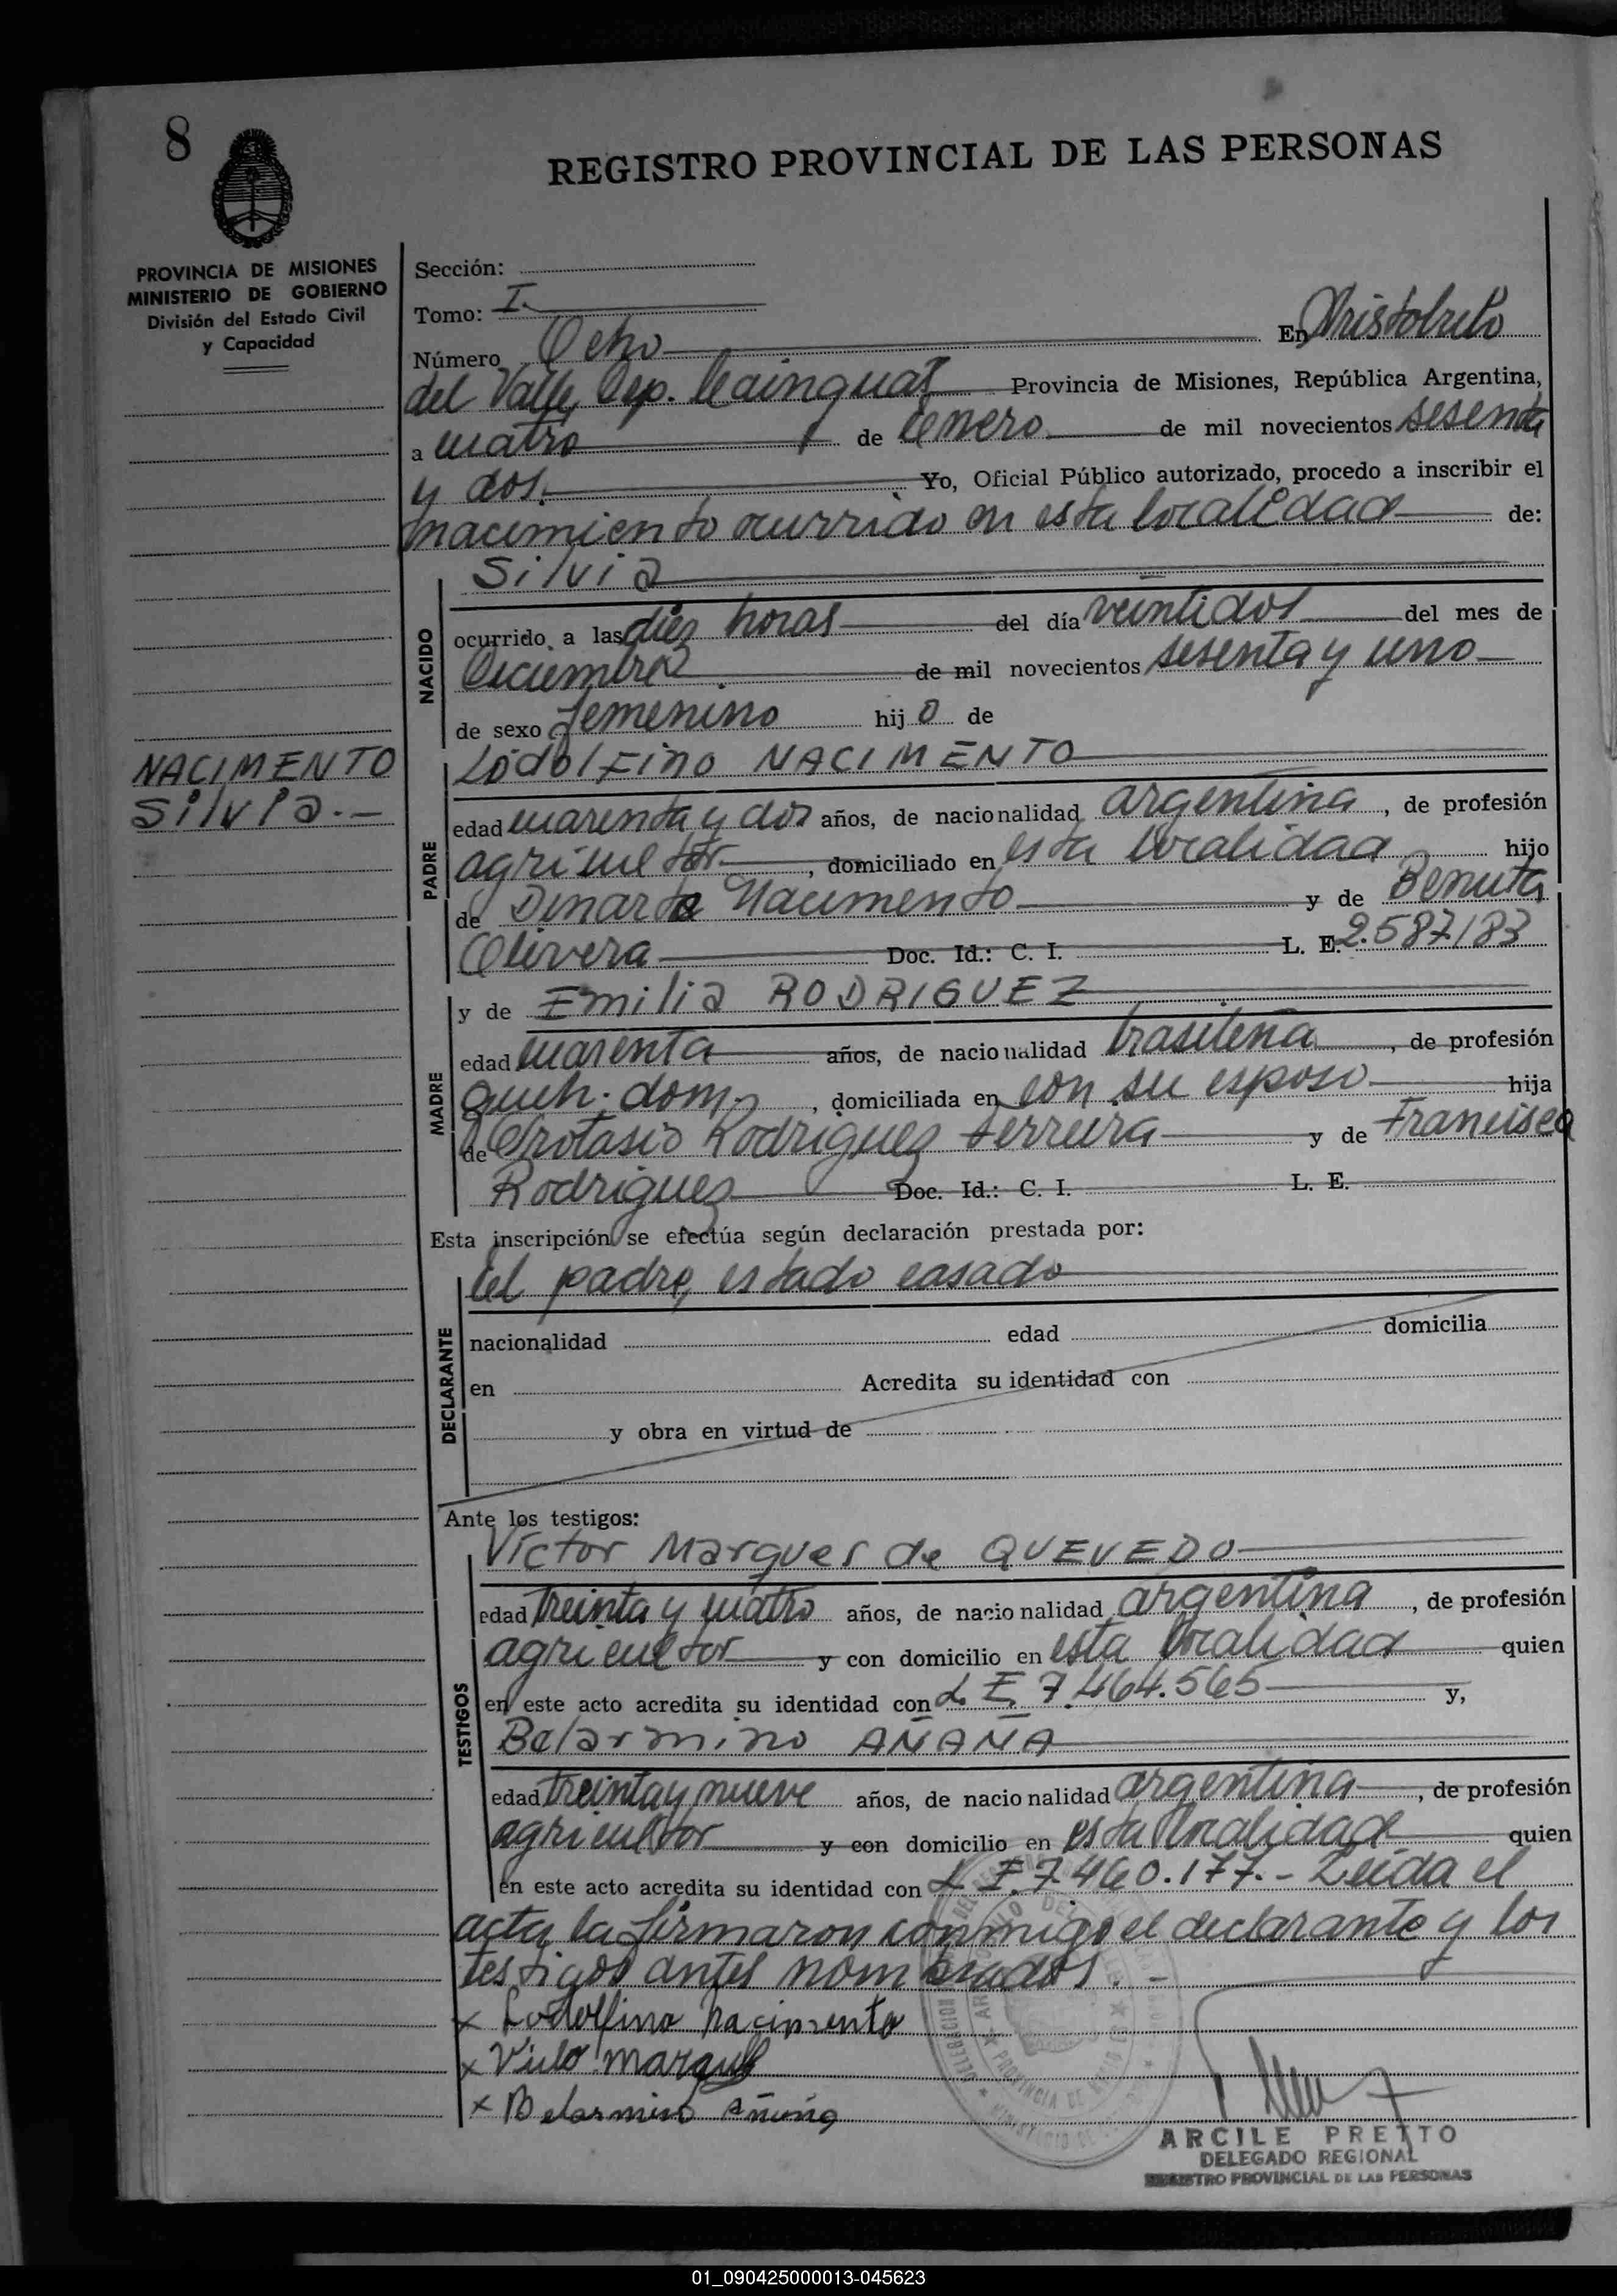 8
REGISTRO PROVINCIAL DE LAS PERSONAS
PROVINCIA DE MISIONES
MINISTERIO DE GOBIERNO
División del Estado Civil
y Capacidad
Sección:
Tomo: I.
Número Ocho En Aristobulo
del Valle, Dep. Cainguas Provincia de Misiones, República Argentina,
a cuatro de Enero de mil novecientos sesenta
y dos. Yo, Oficial Público autorizado, procedo a inscribir el
nacimiento ocurrido en esta localidad de:
Silvia
NACIDO
ocurrido a las diez horas del día veintidos del mes de
Diciembre de mil novecientos sesenta y uno
de sexo femenino hij o de
NACIMENTO
Silvia.-
PADRE
Lodolfino NACIMENTO
edad cuarenta y dos años, de nacionalidad argentina, de profesión
agricultor, domiciliado en esta localidad hijo
de Dinarte Nacimento y de Benuta
Olivera Doc. Id.: C. I. L. E. 2.587183
MADRE
y de Emilia RODRIGUEZ
edad cuarenta años, de nacionalidad brasileña, de profesión
queh. dom., domiciliada en con su esposo hija
de Protasio Rodriguez Ferreira y de Francisca
Rodriguez Doc. Id.: C. I. L. E.
Esta inscripción se efectúa según declaración prestada por:
DECLARANTE
El padre, estado casado
nacionalidad edad domicilia
en Acredita su identidad con
y obra en virtud de
Ante los testigos:
TESTIGOS
Victor Marques de QUEVEDO
edad treinta y cuatro años, de nacionalidad argentina, de profesión
agricultor y con domicilio en esta localidad quien
en este acto acredita su identidad con L. E. 7.464.565 y,
Belarmino AÑAÑA
edad treinta y nueve años, de nacionalidad argentina, de profesión
agricultor y con domicilio en esta localidad quien
en este acto acredita su identidad con L. E. 7.460.177.- Leida el
acta la firmaron conmigo el declarante y los
testigos antes nombrados.-
x Lodolfino nacimento
x marques
x Belarmino Añaña
ARCILE PRETTO
DELEGADO REGIONAL
REGISTRO PROVINCIAL DE LAS PERSONAS
01_090425000013-045623